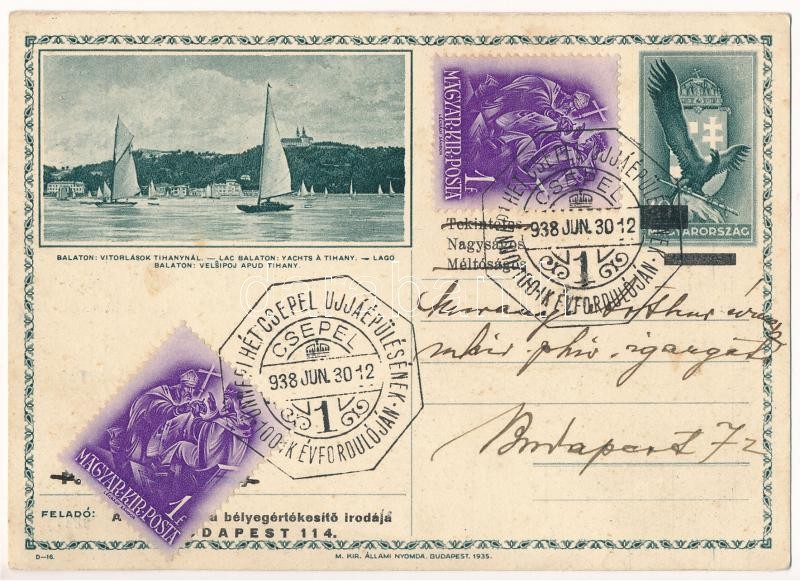 BALATON: VITORLÁSOK TIHANYNÁL. — LAC BALATON: YACHTS À TIHANY. — LAGO
BALATON: VELSIPOJ APUD TIHANY.
MAGYAR·KIR·POSTA
1 f
MAGYARORSZÁG
Tekintetes
Nagyságos
Méltóságos
HÉT CSEPEL UJJÁÉPÜLÉSÉNEK
CSEPEL
938 JUN. 30 12
1
100·IK ÉVFORDULÓJÁN
ÜNNEPI HÉT CSEPEL UJJÁÉPÜLÉSÉNEK
CSEPEL
938 JUN. 30 12
1
100·IK ÉVFORDULÓJÁN
Arthur
Budapest 72
MAGYAR·KIR·POSTA
1 f
FELADÓ: A a bélyegértékesítő irodája
BUDAPEST 114.
D—16.
M. KIR. ÁLLAMI NYOMDA. BUDAPEST. 1935.